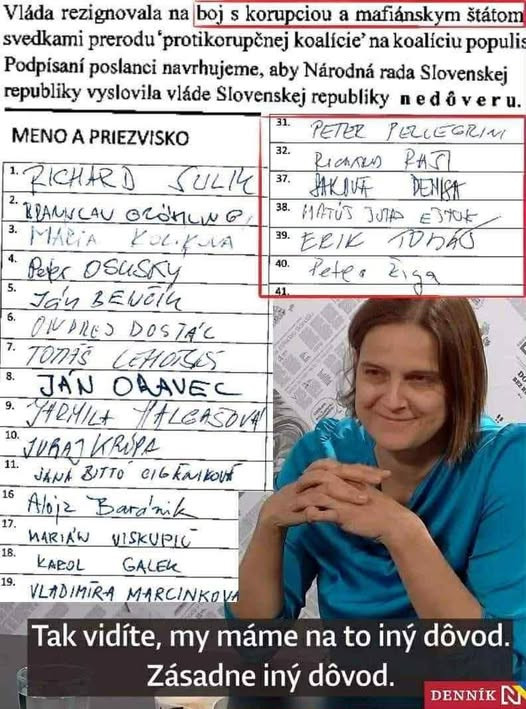 Vláda rezignovala na boj s korupciou a mafiánskym štátom
svedkami prerodu 'protikorupčnej koalície' na koalíciu populis
Podpísaní poslanci navrhujeme, aby Národná rada Slovenskej
republiky vyslovila vláde Slovenskej republiky nedôveru.
MENO A PRIEZVISKO
1. RICHARD SULIK
2. BRANISLAV GRÖHLING
3. MÁRIA KOLÍKOVÁ
4. Peter OSUSKÝ
5. Ján BENČÍK
6. ONDREJ DOSTÁL
7. TOMÁŠ LEHOTSKÝ
8. JÁN ORAVEC
9. JARMILA HALGAŠOVÁ
10. JURAJ KRÚPA
11. JANA BITTÓ CIGÁNIKOVÁ
16 Alojz Baránik
17. MARIÁN VISKUPIČ
18. KAROL GALEK
19. VLADIMÍRA MARCINKOVÁ
31. PETER PELLEGRINI
32. RICHARD RAŠI
37. SAKOVÁ DENISA
38. MATÚŠ ŠUTAJ EŠTOK
39. ERIK TOMÁŠ
40. Peter Žiga
41.
Tak vidíte, my máme na to iný dôvod.
Zásadne iný dôvod.
DENNÍK N